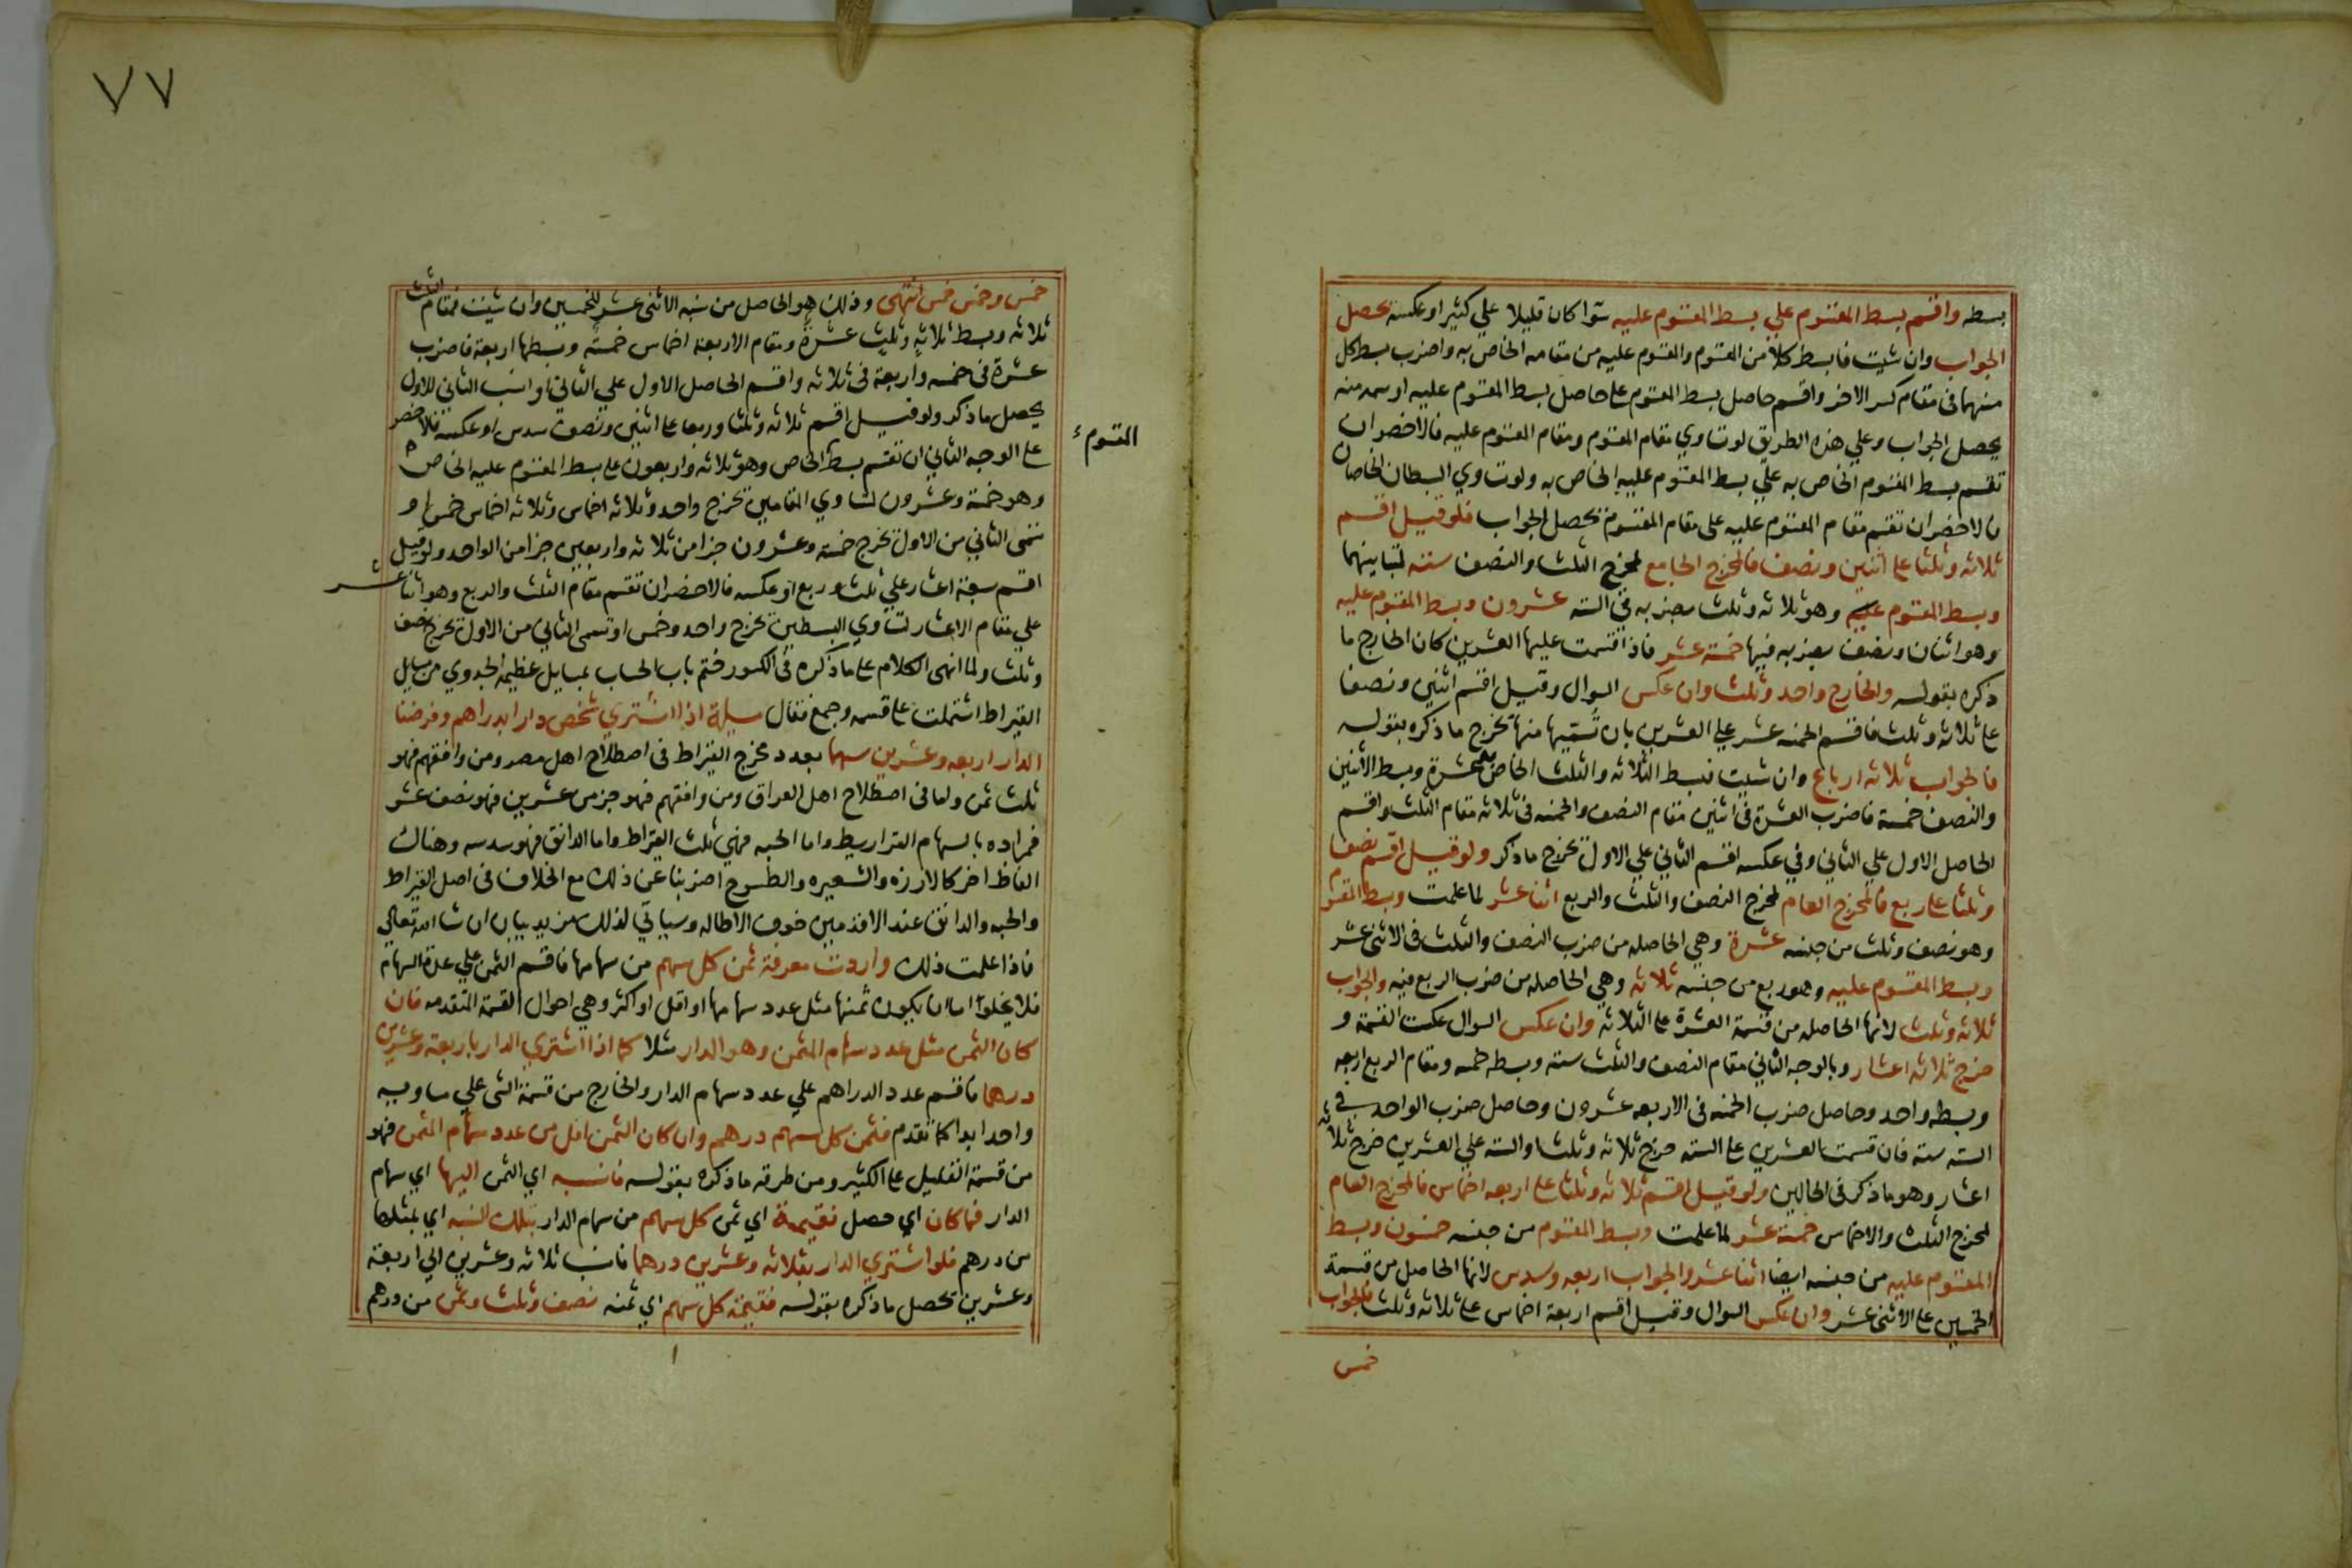 بسطه واقسم بسط المقسوم علي بسط المقسوم عليه سوا كان قليلا علي كثير او عكسه يحصل
الجواب وان شيت فابسط كلا من المقسوم والمقسوم عليه من مقامه الخاص به واضرب بسط كل
منهما في مقام كسر الاخر واقسم حاصل بسط المقسوم علي حاصل بسط المقسوم عليه او سمه منه
يحصل الجواب وعلي هذه الطريق لو تساوي مقام المقسوم ومقام المقسوم عليه فالاخصر ان
تقسم بسط المقسوم الخاص به علي بسط المقسوم عليه الخاص به ولو تساوي البسطان الخاصان
فالاخصر ان تقسم مقام المقسوم عليه على مقام المقسوم يحصل الجواب فلو قيل اقسم
ثلاثه وثلثا علي اثنين ونصف فالمخرج الجامع لمخرج الثلث والنصف سته لتباينهما
وبسط المقسوم عليه وهو ثلاثه وثلث بضربه في السته عشرون وبسط المقسوم عليه
وهو اثنان ونصف بضربه فيها خمسة عشر فاذا قسمت عليها العشرين كان الخارج ما
ذكره بقوله والخارج واحد وثلث وان عكس السوال وقيل اقسم اثنين ونصفا
علي ثلاثه وثلث فاقسم الخمسه عشر علي العشرين بان تسميها منها تخرج ما ذكره بقوله
فالجواب ثلاثه ارباع وان شيت فبسط الثلاثه والثلث الخاص عشرة وبسط الاثنين
والنصف خمسة فاضرب العشرة في اثنين مقام النصف والخمسه في ثلاثه مقام الثلث واقسم
الحاصل الاول علي الثاني وفي عكسه اقسم الثاني علي الاول تخرج ما ذكر ولو قيل اقسم نصفا
وثلثا علي ربع فالمخرج العام لمخرج النصف والثلث والربع اثنا عشر لما علمت وبسط المقسوم
وهو نصف وثلث من جنسه عشرة وهي الحاصله من ضرب النصف والثلث في الاثني عشر
وبسط المقسوم عليه وهو ربع من جنسه ثلاثه وهي الحاصله من ضرب الربع فيه والجواب
ثلاثه وثلث لانها الحاصله من قسمة العشرة علي الثلاثة وان عكس السوال عكست القسمة و
خرج ثلاثه اعشار وبالوجه الثاني مقام النصف والثلث سته وبسطه خمسه ومقام الربع اربعه
وبسطه واحد وحاصل ضرب الخمسه في الاربعه عشرون وحاصل ضرب الواحد في
السته سته فان قسمت العشرين علي السته خرج ثلاثه وثلث او السته علي العشرين خرج ثلاثه
اعشار وهو ما ذكر في الحالين ولو قيل اقسم ثلاثه وثلثا علي اربعه اخماس فالمخرج العام
لمخرج الثلث والاخماس خمسة عشر لما علمت وبسط المقسوم من جنسه خمسون وبسط
المقسوم عليه من جنسه ايضا اثنا عشر والجواب اربعه وسدس لانها الحاصل من قسمة
الخمسين علي الاثني عشر وان عكس السوال وقيل اقسم اربعة اخماس علي ثلاثه وثلث فالجواب
خمس
٧٧
خمس وخمس خمس انتهى وذلك هو الحاصل من نسبة الاثني عشر للخمسين وان شيت فمقام الثلث
ثلاثه وبسط ثلاثه وثلث عشرة ومقام الاربعة اخماس خمسة وبسطها اربعة فاضرب
عشرة في خمسه واربعة في ثلاثه واقسم الحاصل الاول علي الثاني او انسب الثاني للاول
يحصل ما ذكر ولو قيل اقسم ثلاثه وثلثا وربعا علي اثنين ونصف سدس او عكسه فالاخصر
علي الوجه الثاني ان تقسم بسط الخاص وهو ثلاثه واربعون علي بسط المقسوم عليه الخاص
المقسوم
وهو خمسة وعشرون لتساوي المقامين تخرج واحد وثلاثه اخماس وثلاثه اخماس خمس او
تسمى الثاني من الاول تخرج خمسة وعشرون جزا من ثلاثه واربعين جزا من الواحد ولو قيل
اقسم سبعة اعشار علي ثلث وربع او عكسه فالاخصر ان تقسم مقام الثلث والربع وهو اثنا عشر
علي مقام الاعشار لتساوي البسطين تخرج واحد وخمس او تسمى الثاني من الاول تخرج نصف
وثلث ولما انهى الكلام علي ما ذكره في الكسور ختم باب الحساب بمسايل عظيمة الجدوي من مسايل
القيراط اشتملت علي قسمه وجمع فقال مسيلة اذا اشتري شخص دارا بدراهم وفرضنا
الدار اربعه وعشرين سهما بعدد مخرج القيراط في اصطلاح اهل مصر ومن وافقهم فهو
ثلث ثمن واما في اصطلاح اهل العراق ومن وافقهم فهو جز من عشرين فهو نصف عشر
فمراده بالسهام القراريط واما الحبه فهي ثلث القيراط واما الدانق فهو سدسه وهناك
الفاظ اخر كالارزه والشعيره والطسوج اضربنا عن ذلك مع الخلاف في اصل القيراط
والحبه والدانق عند الاقدمين خوف الاطاله وسياتي لذلك مزيد بيان ان شا الله تعالي
فاذا علمت ذلك واردت معرفة ثمن كل سهم من سهامها فاقسم الثمن علي عدة السهام
فلا يخلوا اما ان يكون ثمنها مثل عدد سهامها او اقل او اكثر وهي احوال القسمة المتقدمه فان
كان الثمن مثل عدد سهام المثمن وهو الدار مثلا كما اذا اشتري الدار باربعة وعشرين
درهما فاقسم عدد الدراهم علي عدد سهام الدار والخارج من قسمة الشي علي مساويه
واحد ابدا كما تقدم فثمن كل سهم درهم وان كان الثمن اقل من عدد سهام المثمن فهو
من قسمة القليل علي الكثير ومن طرقه ما ذكره بقوله فانسبه اي الثمن اليها اي سهام
الدار فما كان اي حصل فقيمة اي ثمن كل سهم من سهام الدار بتلك النسبه اي بمثلها
من درهم فلو اشتري الدار بثلاثه وعشرين درهما فانسب ثلاثه وعشرين الي اربعة
وعشرين تحصل ما ذكره بقوله فقيمة كل سهم اي ثمنه نصف وثلث وثمن من درهم